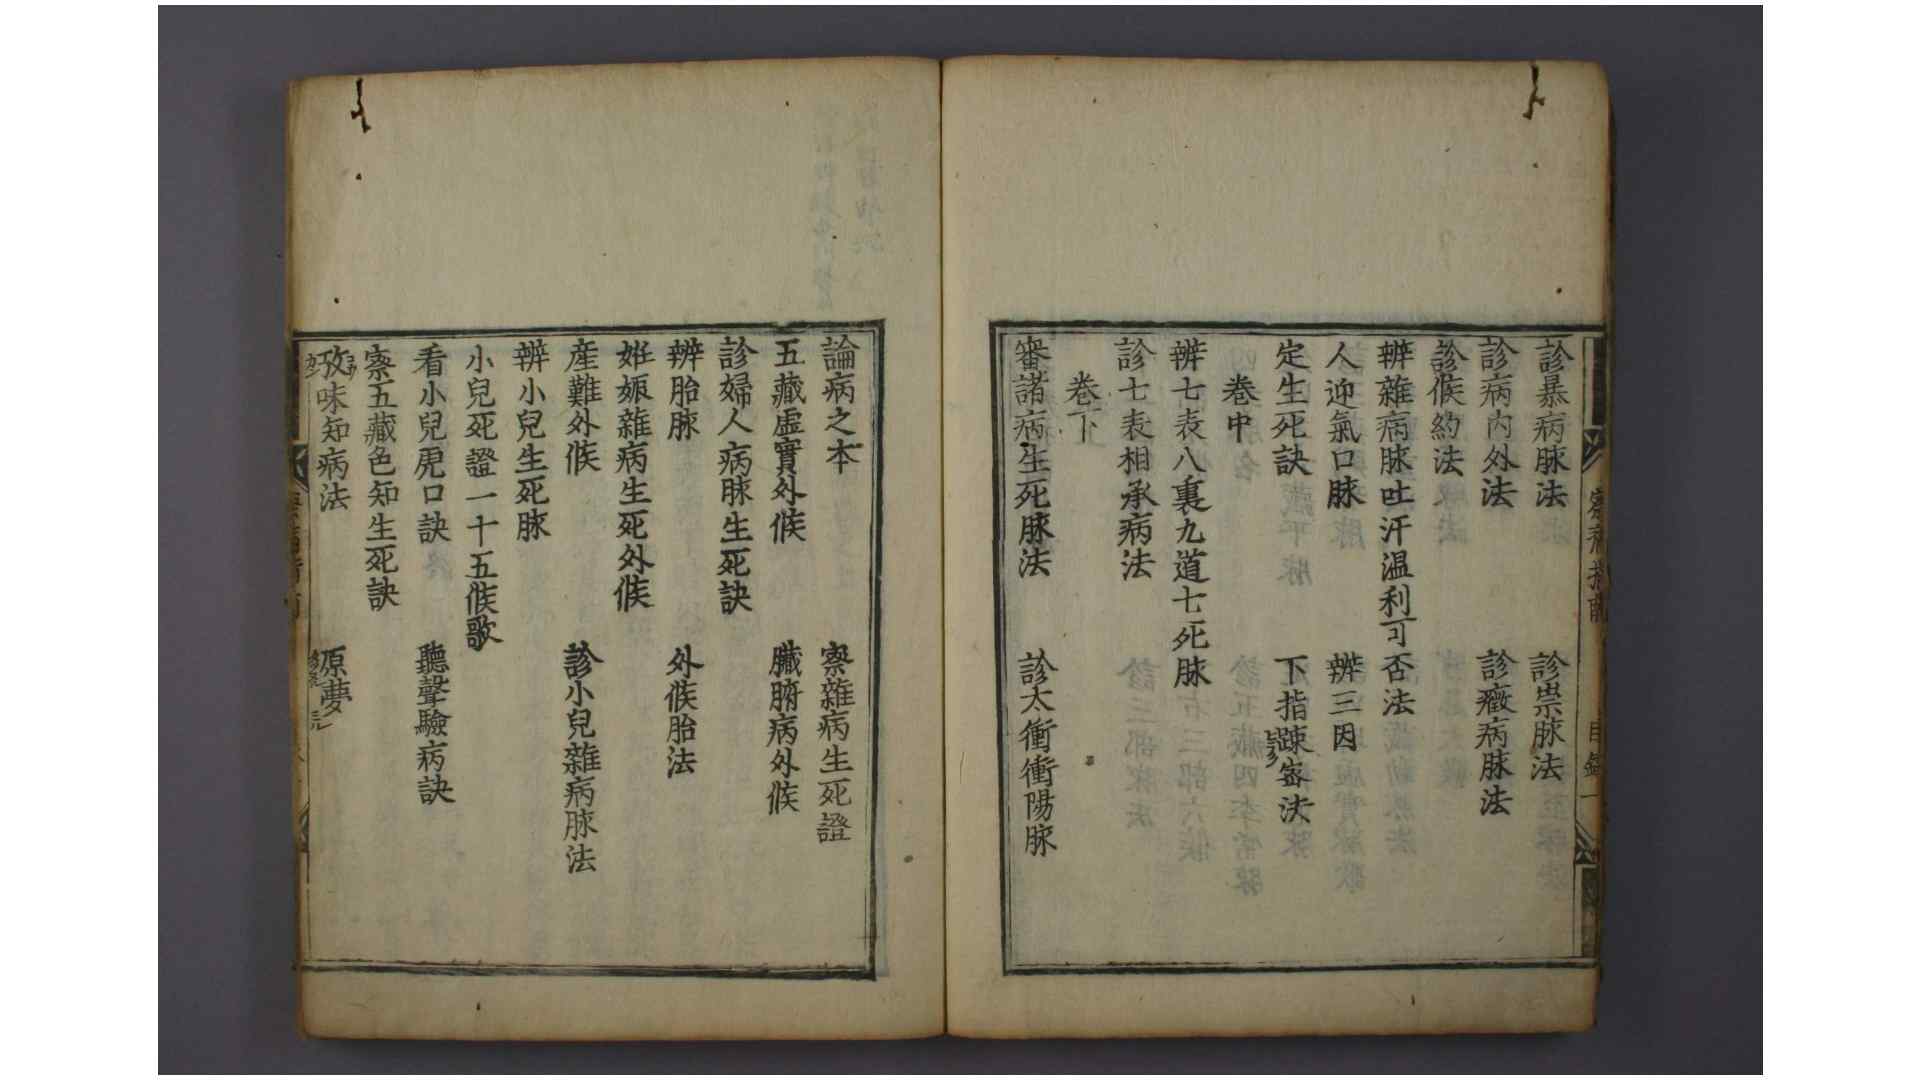 診暴病脉法　診祟脉法
診病內外法　診癥病脉法
診候約法
辨雜病脉吐汗温利可否法
人迎氣口脉　辨三因
定生死訣　下指踈宻法
卷中
辨七表八裏九道七死脉
診七表相承病法
卷下
審諸病生死脉法　診太衝衝陽脉
論病之本　察雜病生死證
五藏虛實外候　臟腑病外候
診婦人病脉生死訣
辨胎脉　外候胎法
姙娠雜病生死外候
産難外候　診小兒雜病脉法
辨小兒生死脉
小兒死證一十五候歌
看小兒虎口訣　聽聲驗病訣
察五藏色知生死訣
攷味知病法　原夢
察病指南　目錄　一